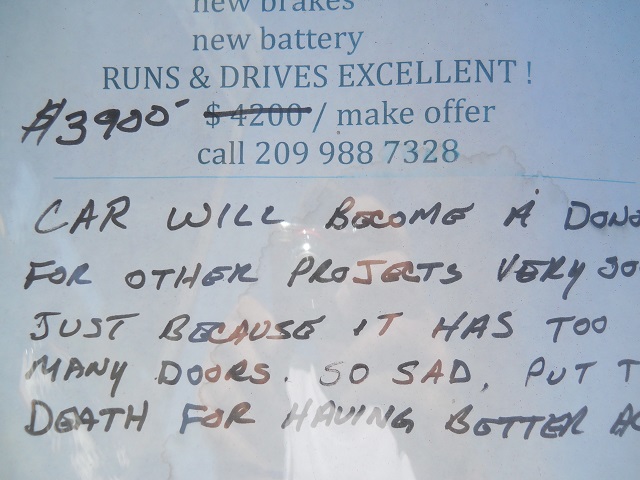 new brakes
new battery
RUNS & DRIVES EXCELLENT !
$3900- $4200 / make offer
call 209 988 7328
CAR WILL BECOME A DONO
FOR OTHER PROJECTS VERY SO
JUST BECAUSE IT HAS TOO
MANY DOORS. SO SAD, PUT T
DEATH FOR HAVING BETTER AC